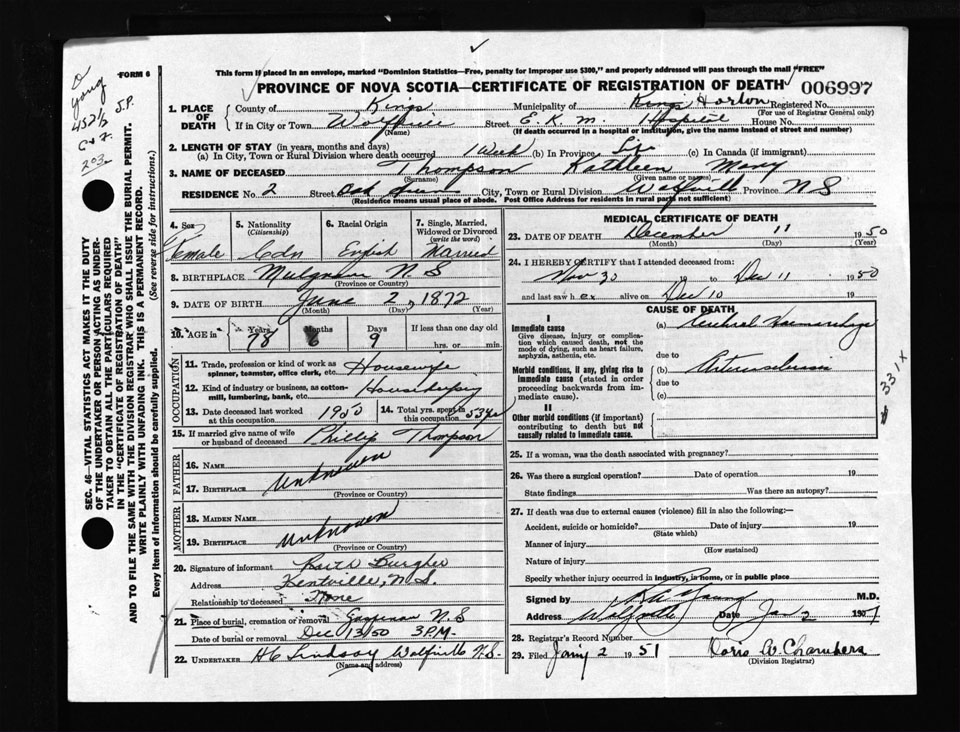 FORM 6
This form if placed in an envelope, marked "Dominion Statistics—Free, penalty for improper use $300," and properly addressed will pass through the mail "FREE"
PROVINCE OF NOVA SCOTIA—CERTIFICATE OF REGISTRATION OF DEATH
006997
1. PLACE OF DEATH
County of Kings Municipality of Kings Horton Registered No.
(For use of Registrar General only)
If in City or Town Wolfville Street E. K. M. Hospital House No.
(Name) (If death occurred in a hospital or institution, give the name instead of street and number)
2. LENGTH OF STAY (in years, months and days)
(a) In City, Town or Rural Division where death occurred 1 Week (b) In Province Life (c) In Canada (if immigrant)
3. NAME OF DECEASED Thompson Kathleen Mary
(Surname) (Given name or names)
RESIDENCE No. 2 Street Oak City, Town or Rural Division Wolfville Province N S
(Residence means usual place of abode. Post Office Address for residents in rural parts not sufficient)
4. Sex Female
5. Nationality (Citizenship) Cdn
6. Racial Origin English
7. Single, Married, Widowed or Divorced (write the word) Married
8. BIRTHPLACE Mulgrave N S
(Province or Country)
9. DATE OF BIRTH June 2, 1872
(Month) (Day) (Year)
10. AGE in Years 78 Months 6 Days 9 If less than one day old hrs. or min.
OCCUPATION
11. Trade, profession or kind of work as spinner, teamster, office clerk, etc. Housewife
12. Kind of industry or business, as cotton-mill, lumbering, bank, etc. Housekeeping
13. Date deceased last worked at this occupation 1950
14. Total yrs. spent in this occupation 53 yrs
15. If married give name of wife or husband of deceased Phillip Thompson
FATHER
16. Name
17. BIRTHPLACE Unknown
(Province or Country)
MOTHER
18. MAIDEN NAME
19. BIRTHPLACE Unknown
(Province or Country)
20. Signature of informant
Address Kentville, N.S.
Relationship to deceased None
21. Place of burial, cremation or removal Gaspereau N S
Date of burial or removal Dec 13/50 3 P.M.
22. UNDERTAKER H C Lindsay Wolfville N.S.
(Name and address)
MEDICAL CERTIFICATE OF DEATH
23. DATE OF DEATH December 11 1950
(Month) (Day) (Year)
24. I HEREBY CERTIFY that I attended deceased from:
Nov 30 19 to Dec 11 1950
and last saw her alive on Dec 10 19
CAUSE OF DEATH
I
Immediate cause
Give disease, injury or complication which caused death, not the mode of dying, such as heart failure, asphyxia, asthenia, etc.
(a) Cerebral Haemorrhage
due to
Morbid conditions, if any, giving rise to immediate cause (stated in order proceeding backwards from immediate cause).
(b) Arteriosclerosis
due to
(c)
II
Other morbid conditions (if important) contributing to death but not causally related to immediate cause.
331 X
25. If a woman, was the death associated with pregnancy?
26. Was there a surgical operation? Date of operation 19
State findings Was there an autopsy?
27. If death was due to external causes (violence) fill in also the following:—
Accident, suicide or homicide? Date of injury 19
(State which)
Manner of injury
(How sustained)
Nature of injury
Specify whether injury occurred in industry, in home, or in public place
Signed by Young M.D.
Address Wolfville Date Jan 2 1951
28. Registrar's Record Number
29. Filed Jany 2 1951 Doris A. Chambers
(Division Registrar)
SEC. 46—VITAL STATISTICS ACT MAKES IT THE DUTY
OF THE UNDERTAKER OR PERSON ACTING AS UNDER-
TAKER TO OBTAIN ALL THE PARTICULARS REQUIRED
IN THE "CERTIFICATE OF REGISTRATION OF DEATH"
AND TO FILE THE SAME WITH THE DIVISION REGISTRAR WHO SHALL ISSUE THE BURIAL PERMIT.
WRITE PLAINLY WITH UNFADING INK. THIS IS A PERMANENT RECORD.
Every item of information should be carefully supplied. (See reverse side for instructions.)